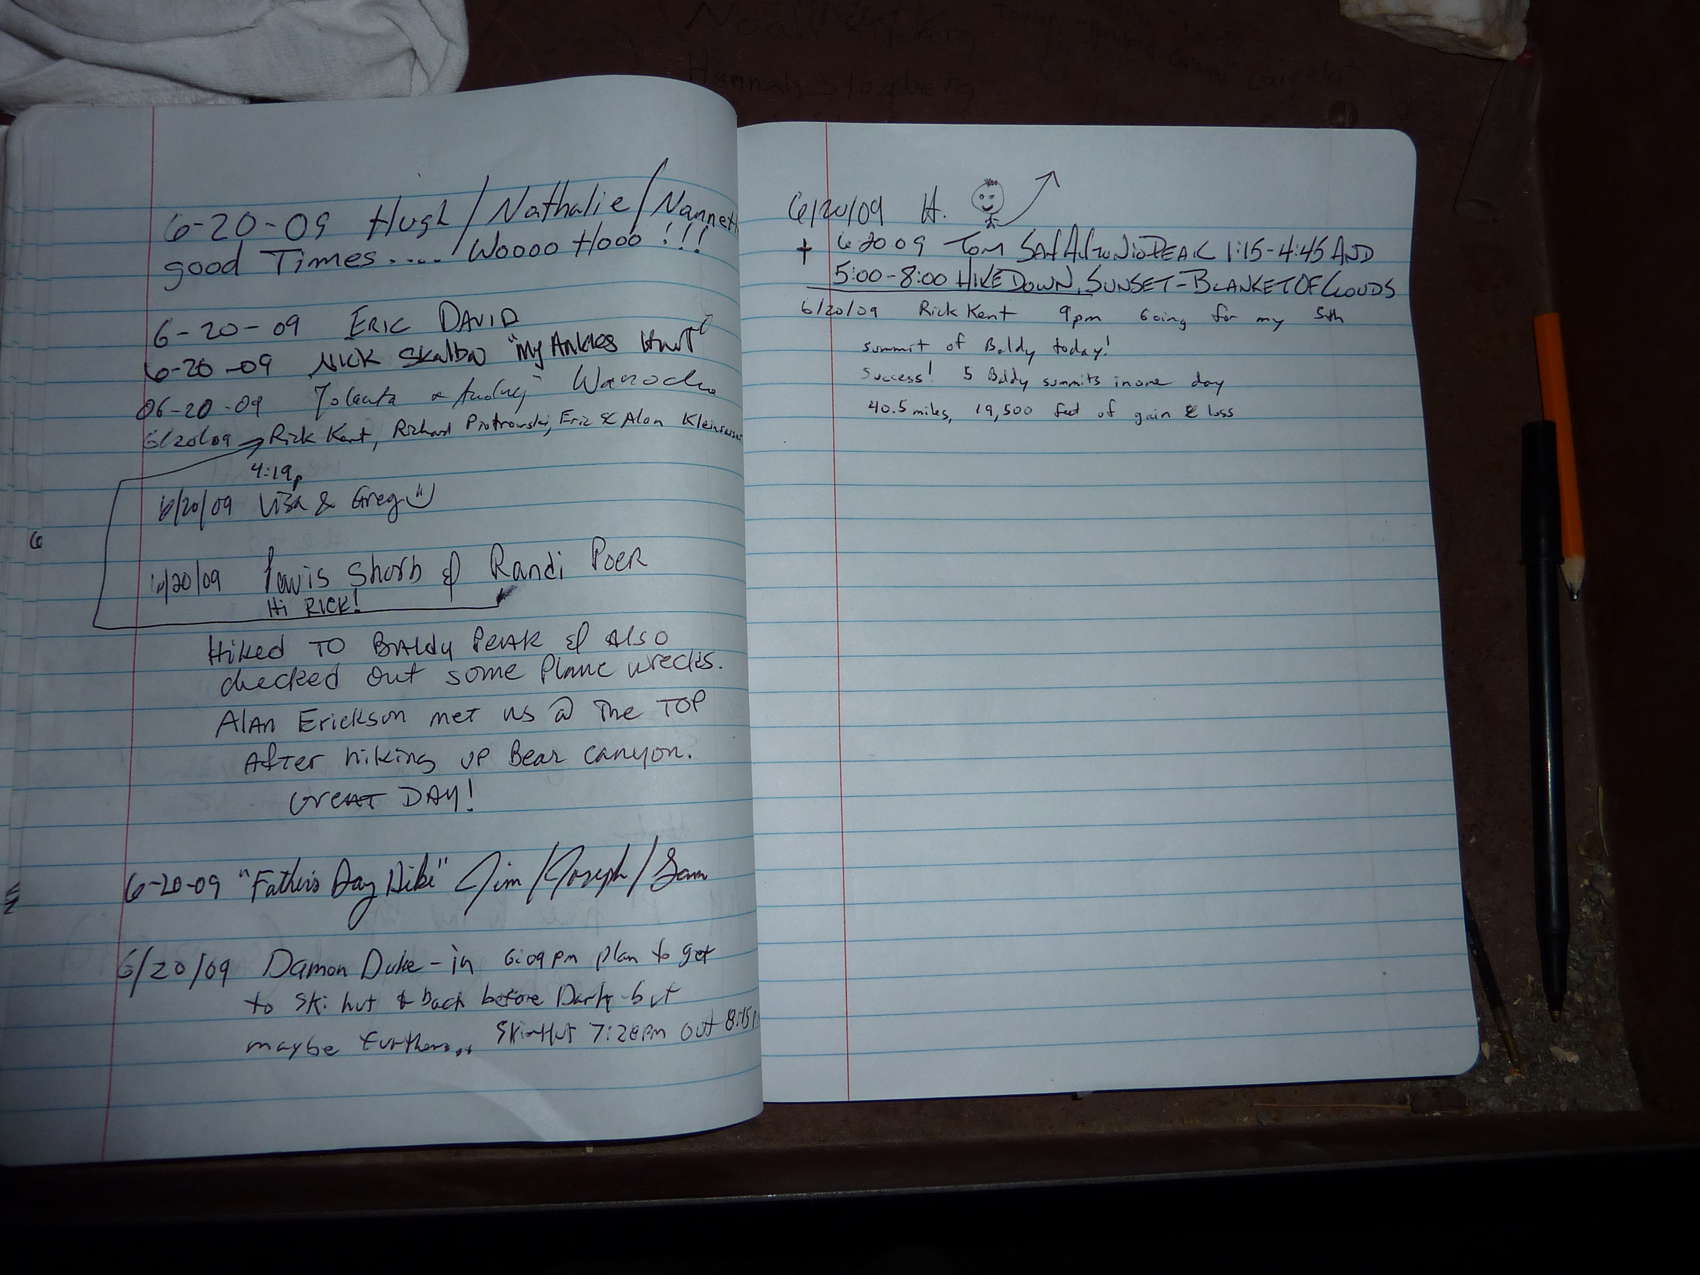 6-20-09 Hugh/Nathalie/Nannet
good Times.... Woooo Hooo!!!
6-20-09 ERIC DAVID
6-20-09 NICK Skalba "My Ankles Hurt"
06-20-09 Jolanta &
6/20/09 Rick Kent, Richard Piotrowski, Eric & Alan
4:19p
6/20/09 Lisa & Greg
6/20/09 Travis Shorb & Randi Poer
Hi RICK!
Hiked TO BAldy PeAK & Also
checked out some Plane wrecks.
Alan Erickson met us @ The TOP
After hiking up Bear canyon.
GreAT DAY!
6-20-09 "Father's Day Hike" Jim/Joseph/Sam
6/20/09 Damon Duke - in 6:09pm plan to get
to ski hut & back before Dark - but
maybe further... Ski Hut 7:28pm out 8:15
6/20/09 H.
6 20 09 TOM SAN ANTONIO PEAK 1:15-4:45 AND
5:00-8:00 HIKE DOWN, SUNSET-BLANKET OF CLOUDS
6/20/09 Rick Kent 9pm Going for my 5th
summit of Baldy today!
Success! 5 Baldy summits in one day
40.5 miles, 19,500 feet of gain & loss